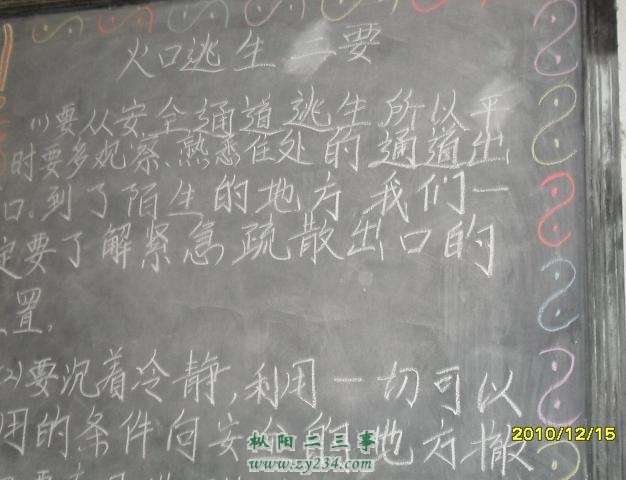 火口逃生二要
(1)要从安全通道逃生所以平
时要多观察、熟悉住处的通道出
口.到了陌生的地方,我们一
定要了解紧急疏散出口的
置,
(2)要沉着冷静,利用一切可以
用的条件向安全的地方撤
2010/12/15
枞阳二三事
www.zy234.com